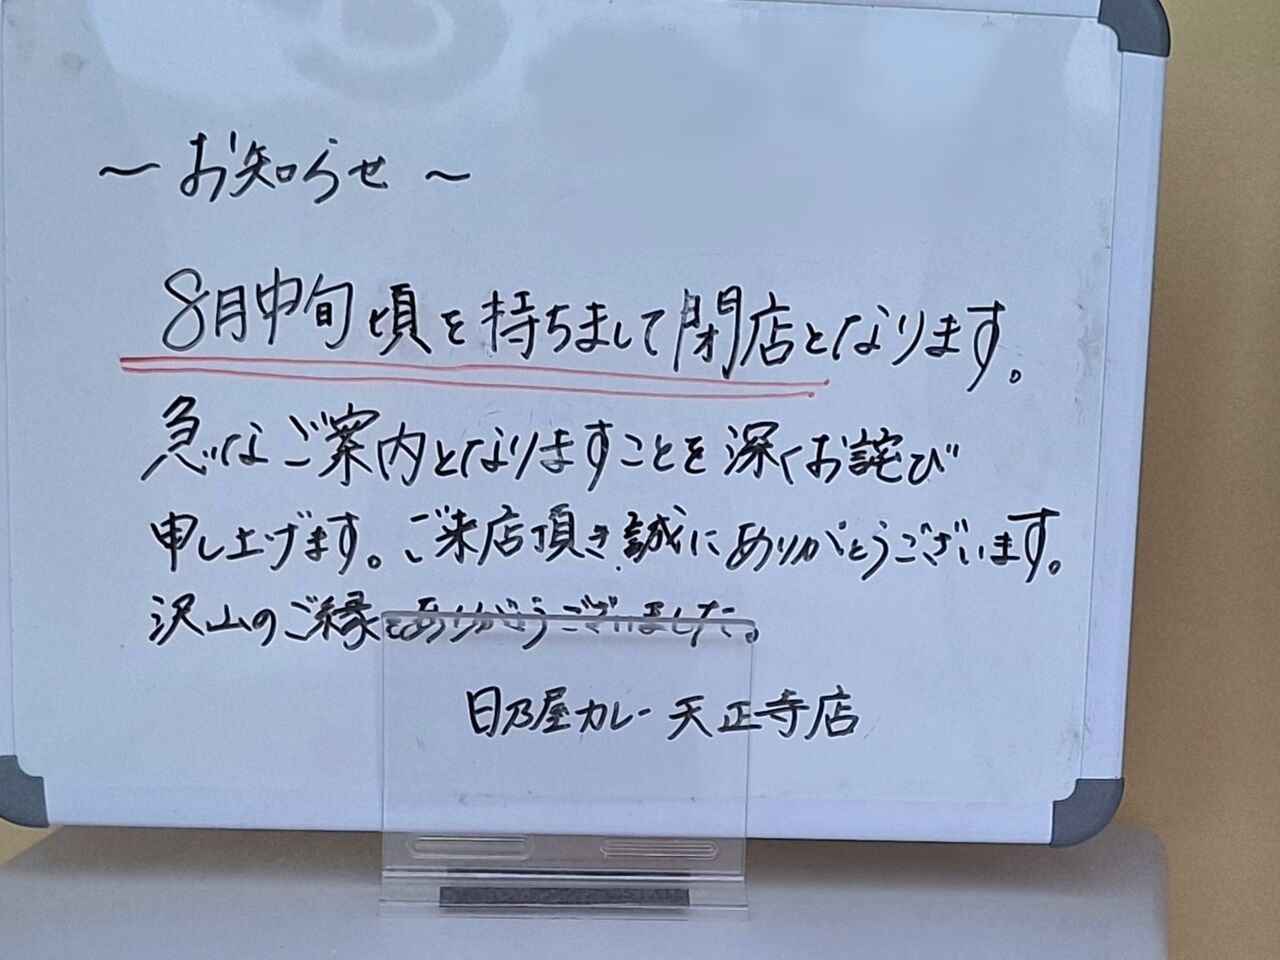 〜お知らせ〜
8月中旬頃を持ちまして閉店となります。
急なご案内となりますことを深くお詫び
申し上げます。ご来店頂き誠にありがとうございます。
沢山のご縁をありがとうございました。
日乃屋カレー 天正寺店